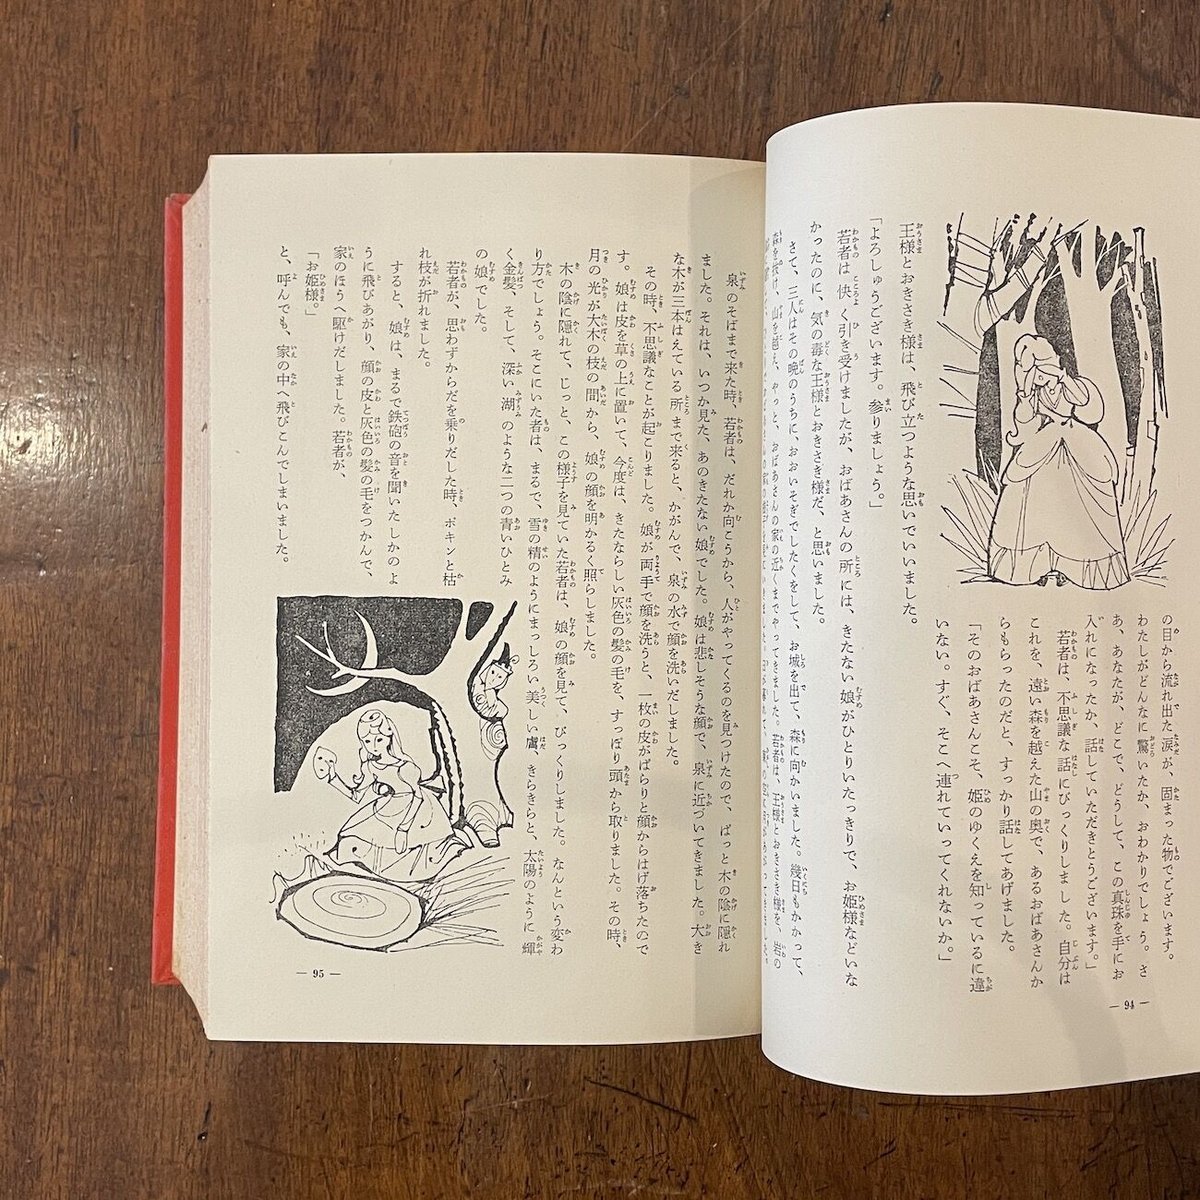 の目から流れ出た涙が、固まった物でございます。
わたしがどんなに驚いたか、おわかりでしょう。さ
あ、あなたが、どこで、どうして、この真珠を手にお
入れになったか、話していただきとうございます。」
若者は、不思議な話にびっくりしました。自分は
これを、遠い森を越えた山の奥で、あるおばあさんか
らもらったのだと、すっかり話してあげました。
「そのおばあさんこそ、姫のゆくえを知っているに違
いない。すぐ、そこへ連れていってくれないか。」
王様とおきさき様は、飛び立つような思いでいいました。
「よろしゅうございます。参りましょう。」
若者は快く引き受けましたが、おばあさんの所には、きたない娘がひとりいたっきりで、お姫様などいな
かったのに、気の毒な王様とおきさき様だ、と思いました。
さて、三人はその晩のうちに、おおいそぎでしたくをして、お城を出て、森に向かいました。幾日もかかって、
森を抜け、山を越え、やっと、おばあさんの家の近くまでやってきました。若者は、王様とおきさき様を、岩の
— 94 —
泉のそばまで来た時、若者は、だれか向こうから、人がやってくるのを見つけたので、ぱっと木の陰に隠れ
ました。それは、いつか見た、あのきたない娘でした。娘は悲しそうな顔で、泉に近づいてきました。大き
な木が三本はえている所まで来ると、かがんで、泉の水で顔を洗いだしました。
その時、不思議なことが起こりました。娘が両手で顔を洗うと、一枚の皮がばらりと顔からはげ落ちたので
す。娘は皮を草の上に置いて、今度は、きたならしい灰色の髪の毛を、すっぽり頭から取りました。その時、
月の光が大木の枝の間から、娘の顔を明かるく照らしました。
木の陰に隠れて、じっと、この様子を見ていた若者は、娘の顔を見て、びっくりしました。なんという変わ
り方でしょう。そこにいた者は、まるで、雪の精のようにまっしろい美しい膚、きらきらと、太陽のように輝
く金髪、そして、深い湖のような二つの青いひとみ
の娘でした。
若者が、思わずからだを乗りだした時、ポキンと枯
れ枝が折れました。
すると、娘は、まるで鉄砲の音を聞いたしかのよ
うに飛びあがり、顔の皮と灰色の髪の毛をつかんで、
家のほうへ駆けだしました。若者が、
「お姫様。」
と、呼んでも、家の中へ飛びこんでしまいました。
— 95 —